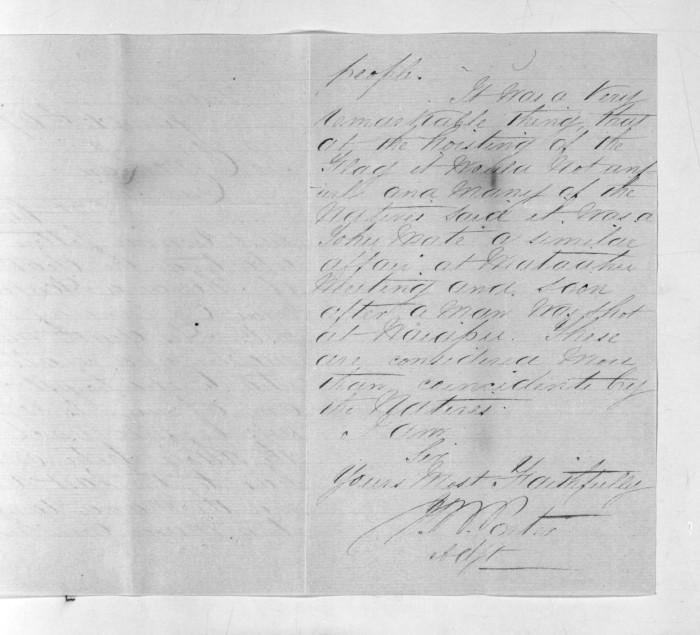 people.
It was a Very
remarkable thing, that
at the hoisting of the
Flag it would not unf
urle and many of the
Natives said it was a
Tohu Mate a similar
affair at Mataahu
Meeting and soon
after a man was shot
at Waiapu. These
are considered more
than coincidents by
the Natives.
I am
Sir
Yours Most Faithfully
Porter
Adjt